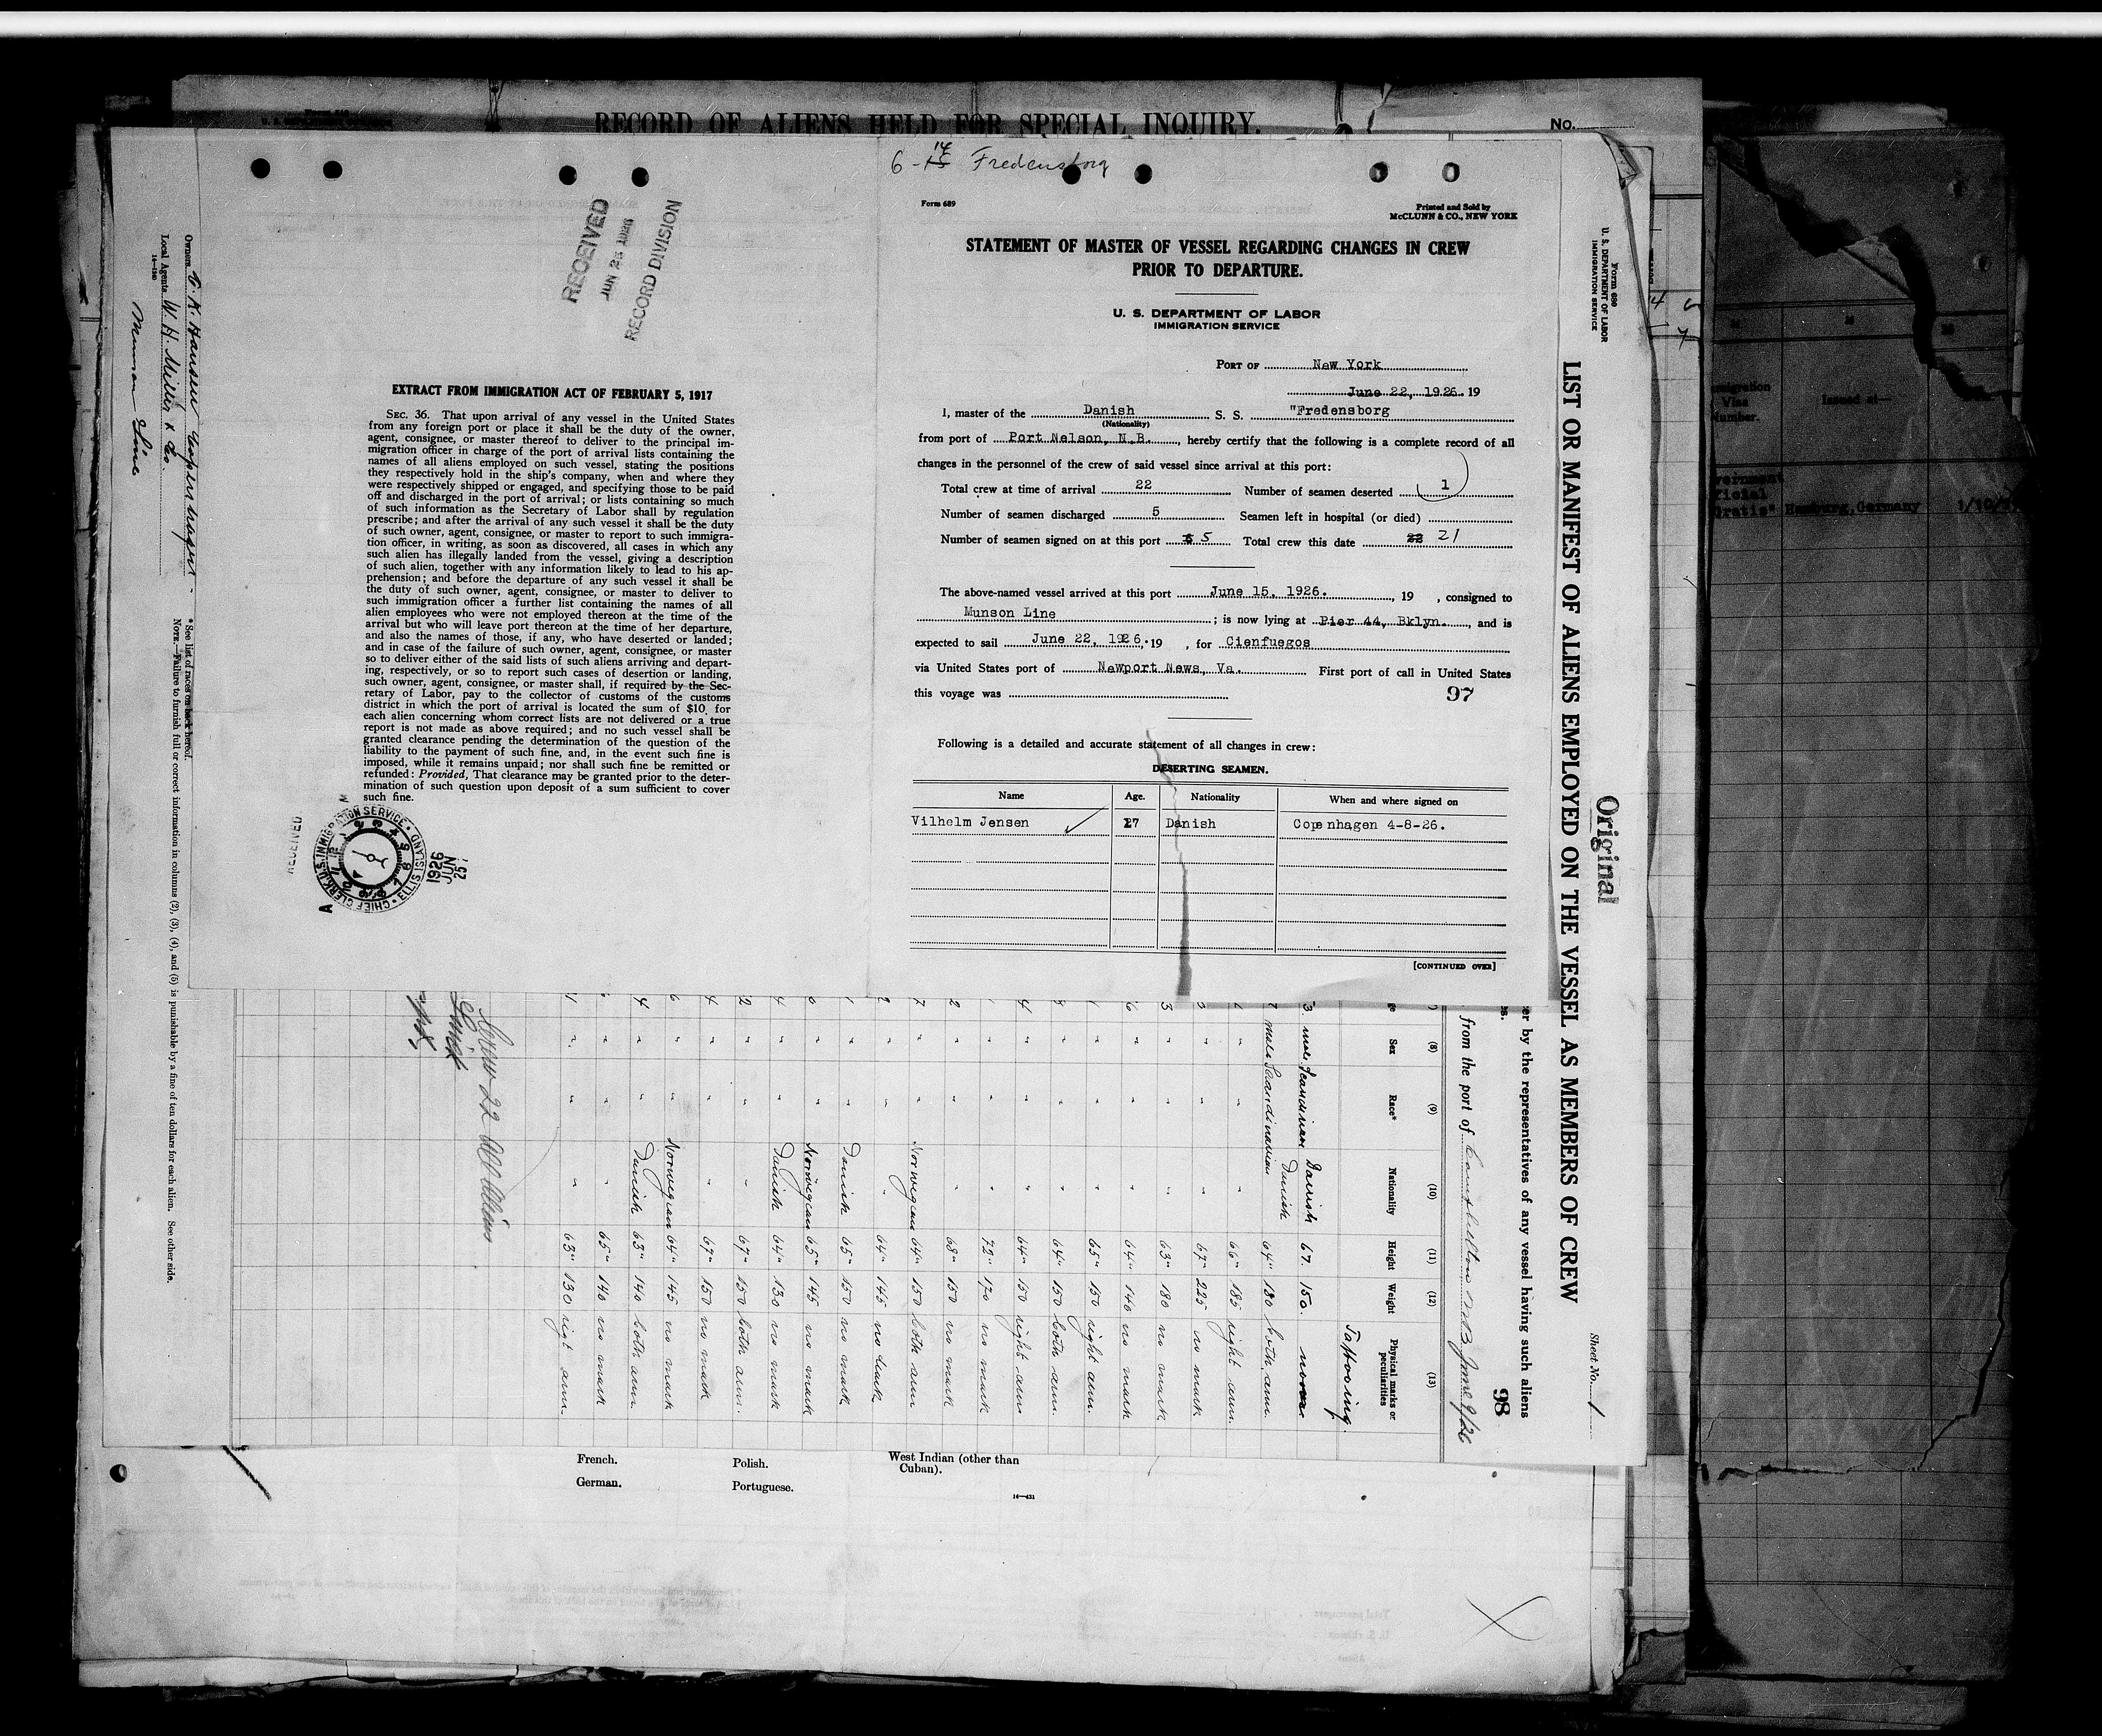 RECORD OF ALIENS HELD FOR SPECIAL INQUIRY.
No.
6 - 14 Fredensborg
RECEIVED
JUN 26 1926
RECORD DIVISION
EXTRACT FROM IMMIGRATION ACT OF FEBRUARY 5, 1917
SEC. 36. That upon arrival of any vessel in the United States
from any foreign port or place it shall be the duty of the owner,
agent, consignee, or master thereof to deliver to the principal im-
migration officer in charge of the port of arrival lists containing the
names of all aliens employed on such vessel, stating the positions
they respectively hold in the ship's company, when and where they
were respectively shipped or engaged, and specifying those to be paid
off and discharged in the port of arrival; or lists containing so much
of such information as the Secretary of Labor shall by regulation
prescribe; and after the arrival of any such vessel it shall be the duty
of such owner, agent, consignee, or master to report to such immigra-
tion officer, in writing, as soon as discovered, all cases in which any
such alien has illegally landed from the vessel, giving a description
of such alien, together with any information likely to lead to his ap-
prehension; and before the departure of any such vessel it shall be
the duty of such owner, agent, consignee, or master to deliver to
such immigration officer a further list containing the names of all
alien employees who were not employed thereon at the time of the
arrival but who will leave port thereon at the time of her departure,
and also the names of those, if any, who have deserted or landed;
and in case of the failure of such owner, agent, consignee, or master
so to deliver either of the said lists of such aliens arriving and depart-
ing, respectively, or so to report such cases of desertion or landing,
such owner, agent, consignee, or master shall, if required by the Sec-
retary of Labor, pay to the collector of customs of the customs
district in which the port of arrival is located the sum of $10 for
each alien concerning whom correct lists are not delivered or a true
report is not made as above required; and no such vessel shall be
granted clearance pending the determination of the question of the
liability to the payment of such fine, and, in the event such fine is
imposed, while it remains unpaid; nor shall such fine be remitted or
refunded: Provided, That clearance may be granted prior to the deter-
mination of such question upon deposit of a sum sufficient to cover
such fine.
RECEIVED
CHIEF CLERK, U.S. IMMIGRATION SERVICE • ELLIS ISLAND •
1926
JUN
25
Form 689
Printed and Sold by
McCLUNN & CO., NEW YORK
STATEMENT OF MASTER OF VESSEL REGARDING CHANGES IN CREW
PRIOR TO DEPARTURE.
U. S. DEPARTMENT OF LABOR
IMMIGRATION SERVICE
PORT OF New York
June 22, 1926. 19
I, master of the Danish S. S. "Fredensborg
(Nationality)
from port of Port Nelson, N.B., hereby certify that the following is a complete record of all
changes in the personnel of the crew of said vessel since arrival at this port:
Total crew at time of arrival 22 Number of seamen deserted 1
Number of seamen discharged 5 Seamen left in hospital (or died)
Number of seamen signed on at this port 5 Total crew this date 22 21
The above-named vessel arrived at this port June 15, 1926. , 19 , consigned to
Munson Line ; is now lying at Pier 44, Bklyn. , and is
expected to sail June 22, 1926, 19 , for Cienfuegos
via United States port of Newport News, Va. First port of call in United States
this voyage was
97
Following is a detailed and accurate statement of all changes in crew:
DESERTING SEAMEN.
Name Age. Nationality When and where signed on
Vilhelm Jensen 27 Danish Copenhagen 4-8-26.
[CONTINUED OVER]
Form 689
U. S. DEPARTMENT OF LABOR
IMMIGRATION SERVICE
LIST OR MANIFEST OF ALIENS EMPLOYED ON THE VESSEL AS MEMBERS OF CREW
Original
Sheet No. 1
er by the representatives of any vessel having such aliens
98
from the port of Campbellton N.B. June 9/26
(8) (9) (10) (11) (12) (13)
Sex Race* Nationality Height Weight Physical marks or
peculiarities
Tattooing.
3. male Scandinavian Danish 67. 150.
male Scandinavian Danish 64" 180 both arm.
" " " 66" 185 right arm.
" " " 67" 225 no mark
3 " " " 63" 180 no mark
6 " " " 64" 140 no mark
" " " 65" 150 right arm.
" " " 64" 150 both arm.
4 " " " 64" 150 right arm
" " " 72" 170 no mark
2 " " " 68" 150 no mark
7 " " Norwegian 64" 150 both arm
" " " 64" 145 no mark
" " Danish 65" 150 no mark
" " Norwegian 65" 145 no mark
4 " " Danish 64" 130 no mark
2 " " " 67" 150 both arm.
4 " " " 67" 150 no mark
6 " " Norwegian 64" 145 no mark
4 " " Danish 63" 140 both arm
" " " 65" 140 no mark
1 " " " 63" 130 rigt arm.
Crew 22 all aliens
Owners
Local Agents W. H. Miller & Co.
Munson Line
* See list of races on back hereof.
NOTE.—Failure to furnish full or correct information in columns (2), (3), (4), and (5) is punishable by a fine of ten dollars for each alien. See other side.
French.
German.
Polish.
Portuguese.
West Indian (other than
Cuban).
Visa
Issued at—
Gratis" Hamburg, Germany